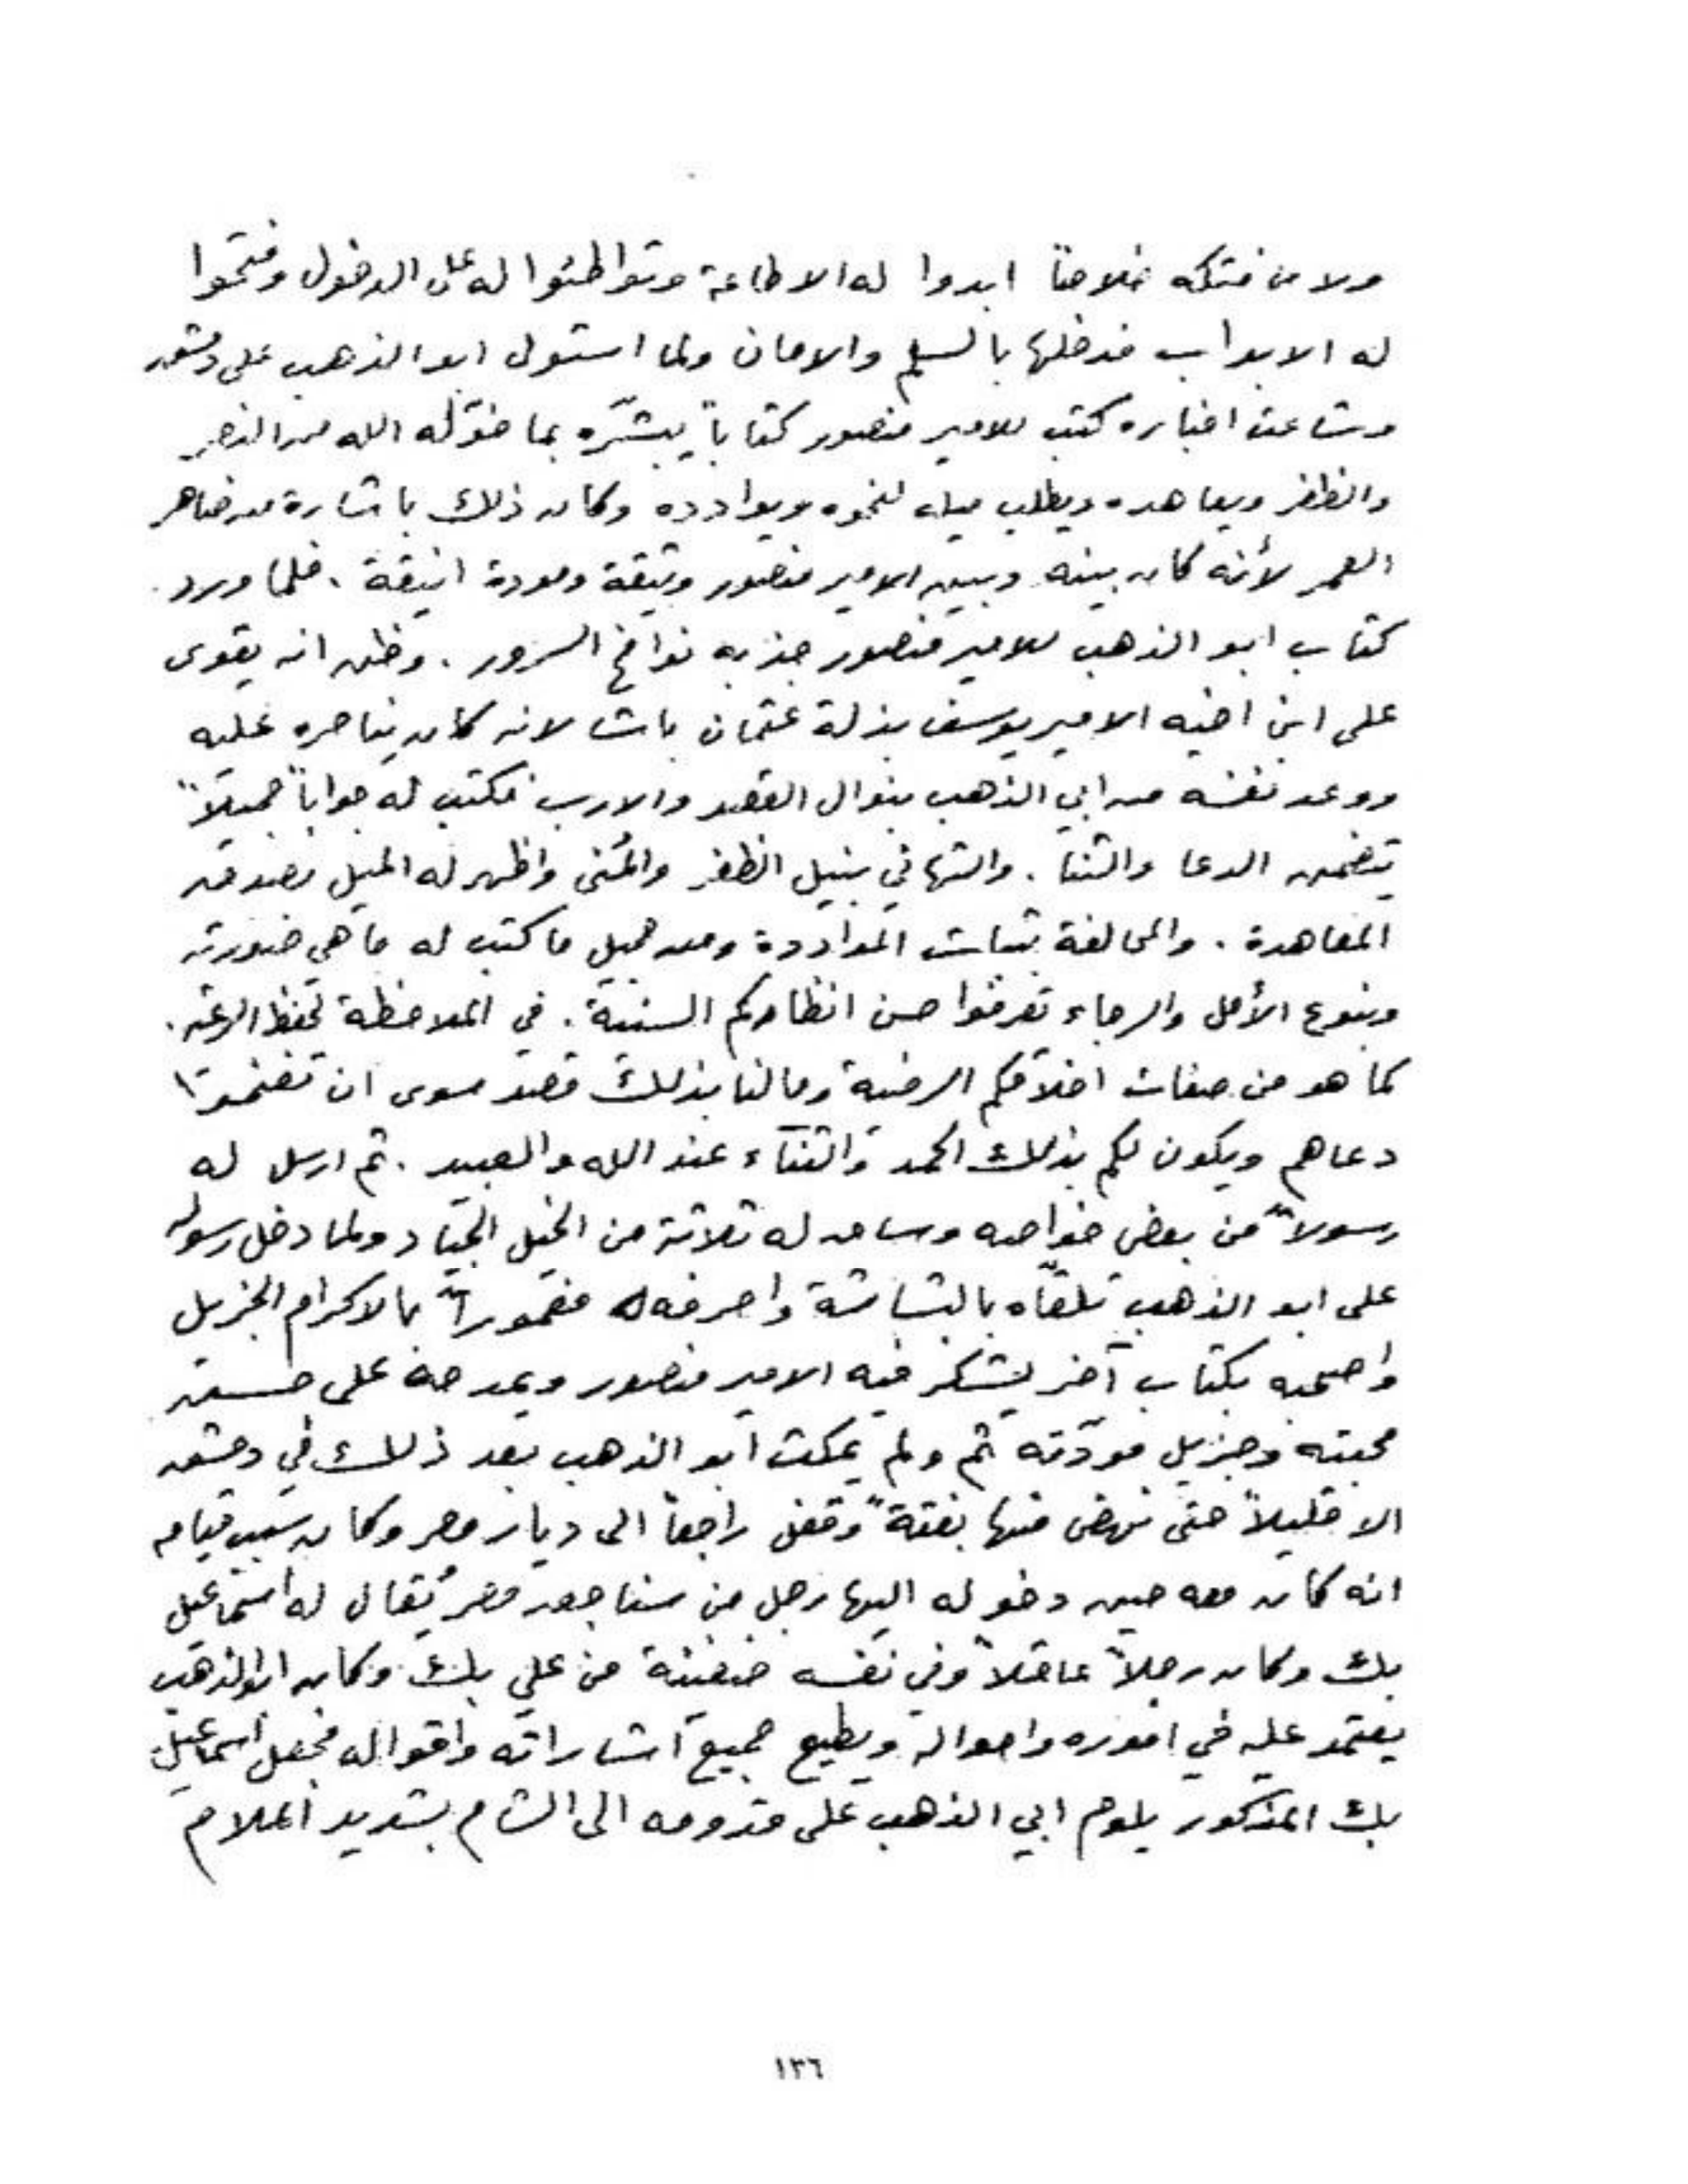 ولا من فتكه خلاصاً ابدوا له الاطاعة وتواطئوا له على الدخول وفتحوا
له الابواب فدخلها بالسلم والامان ولما استولى ابو الذهب على دمشق
وشاعت اخباره كتب للامير منصور كتاباً يبشّره بما خوّله الله من النصر
والظفر ويعاهده ويطلب ميله لنحوه ويوادده وكان ذلك باشارة من ضاهر
العمر لأنه كان بينه وبين الامير منصور وثيقة ومودة انيقة . فلما ورد
كتاب ابو الذهب للامير منصور جذبه نوافخ السرور . وظن انه يقوى
على ابن اخيه الامير يوسف بذلة عثمان باشا لانه كان يناصره عليه
ووعد نفسه من ابي الذهب بنوال القصد والارب فكتب له جواباً جميلاً
يتضمن الدعا والثنا . والتهاني بنيل الظفر والمُنى واظهر له الميل بصدق
المعاهدة . والمحالفة بثبات المواددة ومن جميل ما كتب له ما هي صورته
وبنوع الأمل والرجاء تعرفوا حسن انظاركم السنية . في الملاحظة لحفظ الرعية .
كما هو من صفات اخلاقكم الرضية وما لنا بذلك قصد سوى ان تغنموا
دعاهم ويكون لكم بذلك الحمد والثناء عند الله والعبيد . ثم ارسل له
رسولاً من بعض خواصه وساق له ثلاثة من الخيل الجياد ولما دخل رسوله
على ابو الذهب تلقّاه بالبشاشة واصرفه له مغموراً بالاكرام الجزيل
واصحبه بكتاب آخر يشكر فيه الامير منصور ويمدحه على حسن
محبته وجزيل مودّته ثم ولم يمكث ابو الذهب بعد ذلك في دمشق
الا قليلاً حتى نهض منها بغتةً وقفل راجعاً الى ديار مصر وكان سبب قيامه
انه كان معه حين دخوله اليها رجل من سناجق مصر يُقال له اسماعيل
بك وكان رجلاً عاقلاً وفي نفسه ضغينة من علي بك وكان ابو الذهب
يعتمد عليه في اموره واحواله ويطيع جميع اشاراته واقواله فجعل اسماعيل
بك المذكور يلوم ابي الذهب على قدومه الى الشام بشديد الملام
١٣٦